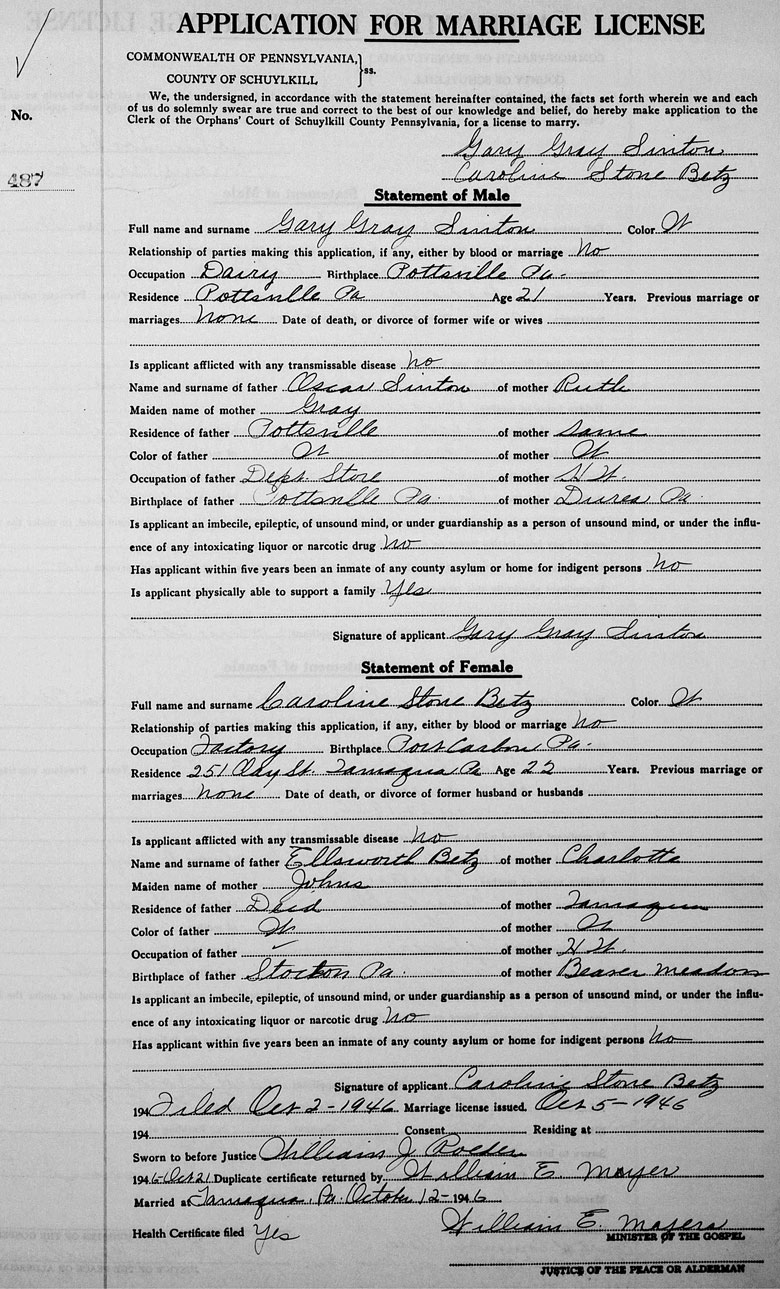 APPLICATION FOR MARRIAGE LICENSE
COMMONWEALTH OF PENNSYLVANIA,
COUNTY OF SCHUYLKILL } ss.
We, the undersigned, in accordance with the statement hereinafter contained, the facts set forth wherein we and each
of us do solemnly swear are true and correct to the best of our knowledge and belief, do hereby make application to the
Clerk of the Orphans' Court of Schuylkill County Pennsylvania, for a license to marry.
No.
487
Gary Gray Sinton
Caroline Stone Betz
Statement of Male
Full name and surname Gary Gray Sinton Color W
Relationship of parties making this application, if any, either by blood or marriage No
Occupation Dairy Birthplace Pottsville Pa.
Residence Pottsville Pa Age 21 Years. Previous marriage or
marriages None Date of death, or divorce of former wife or wives
Is applicant afflicted with any transmissable disease No
Name and surname of father Oscar Sinton of mother Ruth
Maiden name of mother Gray
Residence of father Pottsville of mother Same
Color of father W of mother W
Occupation of father Dept. Store of mother H.W.
Birthplace of father Pottsville Pa. of mother Durea Pa.
Is applicant an imbecile, epileptic, of unsound mind, or under guardianship as a person of unsound mind, or under the influ-
ence of any intoxicating liquor or narcotic drug No
Has applicant within five years been an inmate of any county asylum or home for indigent persons No
Is applicant physically able to support a family Yes
Signature of applicant Gary Gray Sinton
Statement of Female
Full name and surname Caroline Stone Betz Color W
Relationship of parties making this application, if any, either by blood or marriage No
Occupation Factory Birthplace Port Carbon Pa.
Residence 251 Clay St. Tamaqua Pa Age 22 Years. Previous marriage or
marriages None Date of death, or divorce of former husband or husbands
Is applicant afflicted with any transmissable disease No
Name and surname of father Ellsworth Betz of mother Charlotte
Maiden name of mother Johns
Residence of father Dead of mother Tamaqua
Color of father W of mother W
Occupation of father – of mother H.W.
Birthplace of father Stockton Pa. of mother Beaver Meadow
Is applicant an imbecile, epileptic, of unsound mind, or under guardianship as a person of unsound mind, or under the influ-
ence of any intoxicating liquor or narcotic drug No
Has applicant within five years been an inmate of any county asylum or home for indigent persons No
Signature of applicant Caroline Stone Betz
194 Filed Oct 2-1946 Marriage license issued. Oct 5-1946
194 Consent Residing at
Sworn to before Justice William J
1946 Oct 21 Duplicate certificate returned by William E. Moyer
Married at Tamaqua, Pa. October 12-1946
Health Certificate filed Yes
William E.
MINISTER OF THE GOSPEL
JUSTICE OF THE PEACE OR ALDERMAN